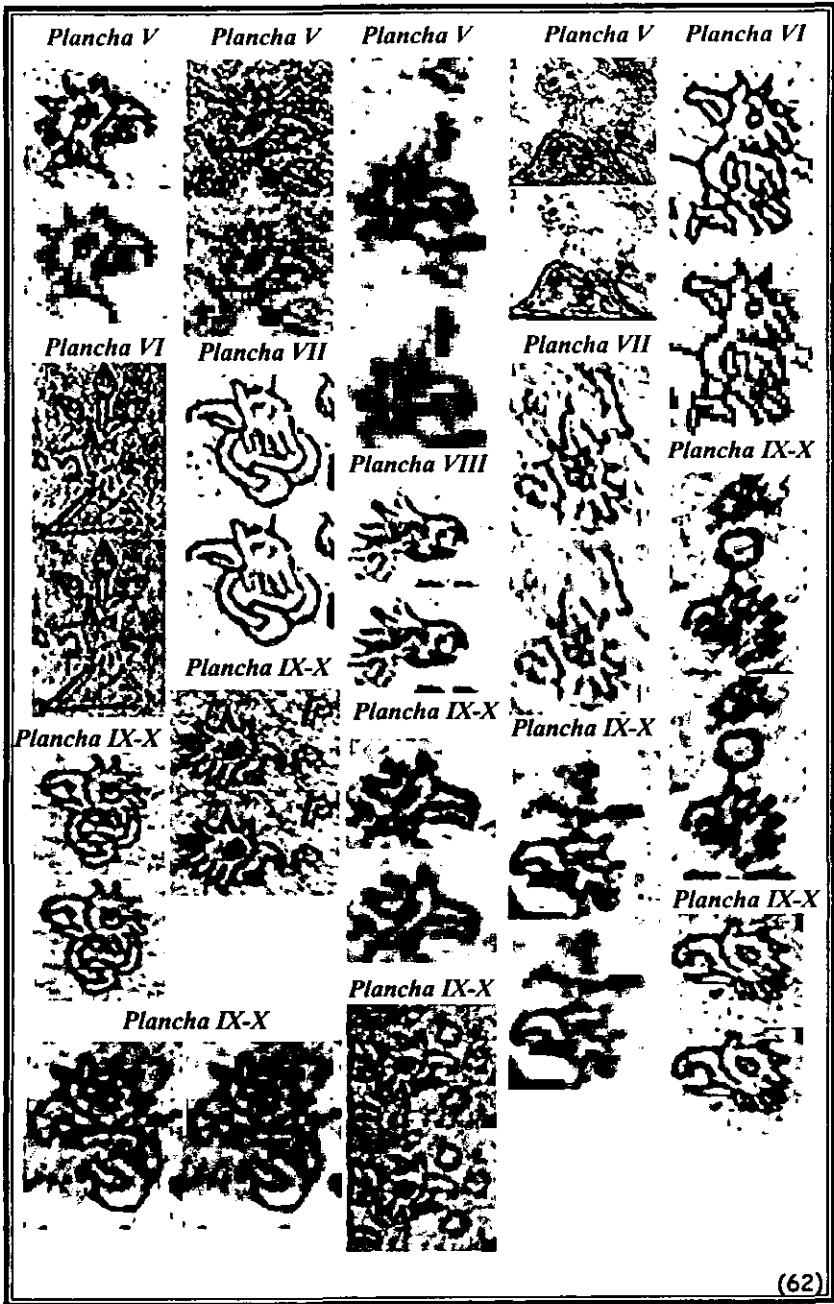 Plancha V
Plancha V
Plancha V
Plancha V
Plancha VI
Plancha VI
Plancha VII
Plancha VII
Plancha VIII
Plancha IX-X
Plancha IX-X
Plancha IX-X
Plancha IX-X
Plancha IX-X
Plancha IX-X
Plancha IX-X
Plancha IX-X
(62)